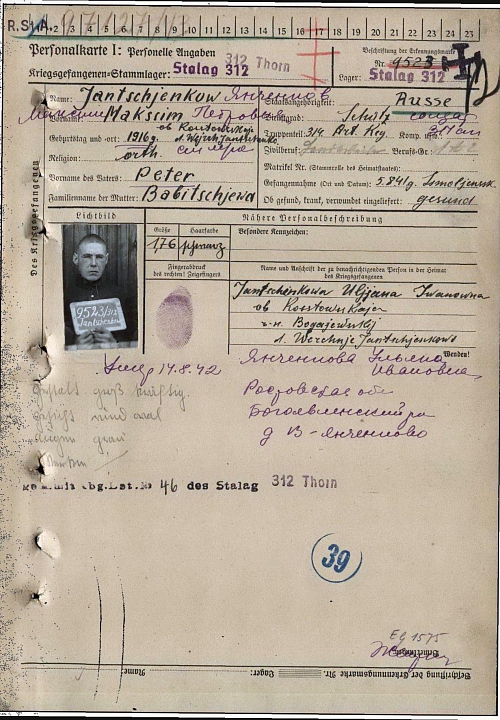 R.St.A. 2 3 4 5 6 7 8 9 10 11 12 13 14 15 16 17 18 19 20 21 22 23 24 25
Personalkarte I: Personelle Angaben
Kriegsgefangenen-Stammlager: Stalag 312 312 Thorn
Beschriftung der Erkennungsmarke
Nr. 9523
Lager: Stalag 312
Des Kriegsgefangenen
Name: Jantschjenkow Янченков
Vorname: Makssim Петрович
Geburtstag und -ort: 1916g.
Religion: orth.
Vorname des Vaters: Peter
Familienname der Mutter: Babitschjewa
Staatsangehörigkeit: Russe
Dienstgrad: Schütz солдат
Truppenteil: 314 Art. Reg. Komp. usw.
Zivilberuf: Berufs-Gr.:
Matrikel Nr. (Stammrolle des Heimatstaates):
Gefangennahme (Ort und Datum): 5.8.41g. Smoljensk
Ob gesund, krank, verwundet eingeliefert: gesund
Lichtbild
9523/312
Jantschenkow
Nähere Personalbeschreibung
Größe Haarfarbe
176 schwarz
Besondere Kennzeichen:
Fingerabdruck
des rechten! Zeigefingers
Name und Anschrift der zu benachrichtigenden Person in der Heimat
des Kriegsgefangenen
Jantschenkowa Uljjana Iwanowna
ob Rosstowskaja
r-n. Bogajewskij
d. Werchnje Jantschjenkowo
Wenden!
умер 14.8.42
Янченкова Ульяна
Ивановна
Ростовская об
Богаевленский рн
д В-Янченково
46 des Stalag 312 Thorn
39
Eg 1575
Beschriftung der Erkennungsmarke Nr. Lager: Name: